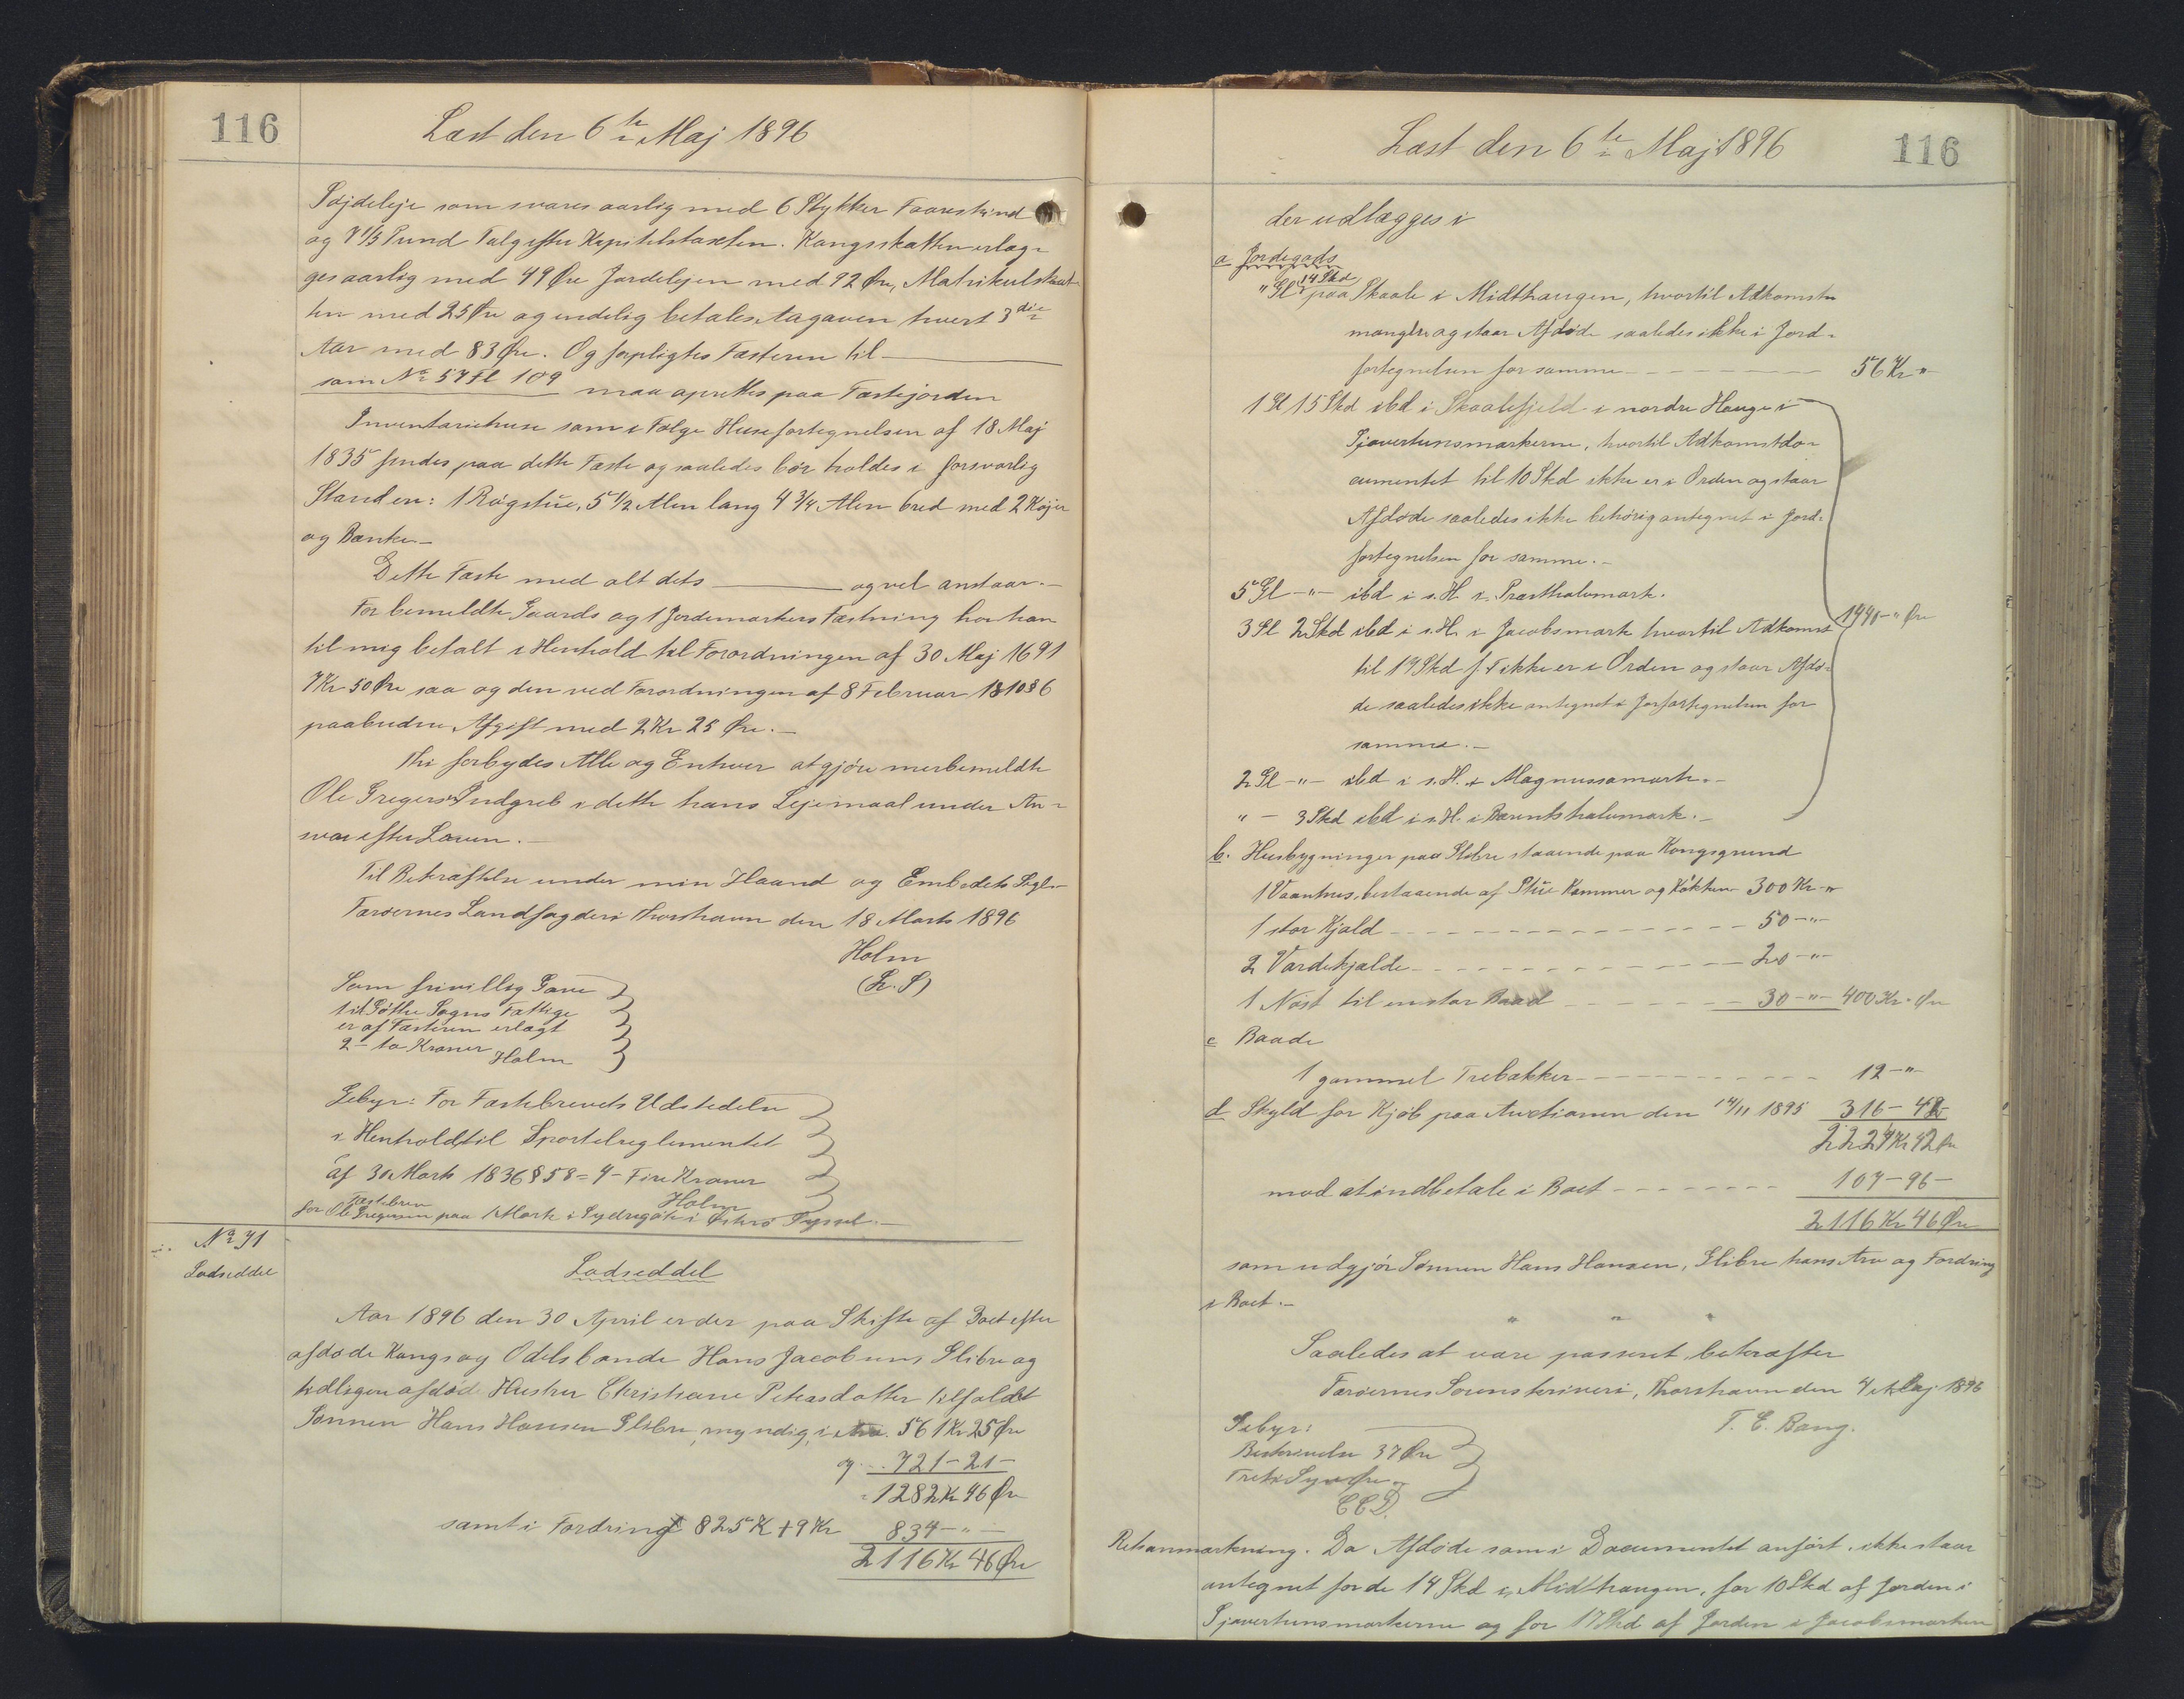 116
Læst den 6te Maj 1896
Søjdeleje som svares aarlig med 6 Stykker Faareskind
og 7 1/3 Pund Talg efter Kapitelstaxten. Kongsskatten erlæg-
ges aarlig med 49 Øre Jordelejen med 92 Øre, Matrikulskat-
ten med 25 Øre og endelig betales Tagaven hvert 3die
Aar med 83 Øre. Og forpligtes Fæsteren til
som No 57 Fl 109 maa oprettes paa Fæstejorden
Inventariehuse som i Følge Husefortegnelsen af 18 Maj
1835 findes paa dette Fæste og saaledes bør holdes i forsvarlig
Stand ere: 1 Røgstue, 5 1/2 Alen lang 4 3/4 Alen bred med 2 Køjer
og Bænke.
Dette Fæste med alt dets og vel anstaar.
For bemeldte Gaards og 1 Jordemarkers Fæstning har han
til mig betalt i Henhold til Forordningen af 30 Maj 1691
7 Kr 50 Øre saa og den ved Forordningen af 8 Februar 1810 § 6
paabudne Afgift med 2 Kr 25 Øre.
Thi forbydes Alle og Enhver at gjøre merbemeldte
Ole Gregersen Indgreb i dette hans Lejemaal under An-
svar efter Loven.
Til Bekræftelse under min Haand og Embedets Segl.
Færøernes Landfogderi Thorshavn den 18 Marts 1896
Holm
(L. S)
Som frivillig Gave
til Gøthe Sogns Fattige
er af Fæsteren erlagt
2 - to Kroner
Holm
Gebyr: For Fæstebrevets Udstedelse
i Henhold til Sportelreglementet
af 30 Marts 1836 § 58 = 4 - Fire Kroner
Holm
Fæstebrev
for Ole Gregersen paa 1 Mark i Sydregøte i Østerø Syssel.
No 31
Lodseddel
Lodseddel
Aar 1896 den 30 April er der paa Skifte af Boet efter
afdøde Kongs og Odelsbonde Hans Jacobsens Glibre og
tidligere afdøde Hustru Christiane Petersdatter tilfaldet
Sønnen Hans Hansen Glibre, myndig, i Arv. 561 Kr 25 Øre
og 721 - 21 -
1282 Kr 46 Øre
samt i Fordring 825 K + 9 Kr 834 - " -
2116 Kr 46 Øre
Læst den 6te Maj 1896
116
der udlægges i
a Jordegods
" Gl 14 Skd paa Skaale i Midthaugen, hvortil Adkomsten
mangler og staar Afdøde saaledes ikke i Jord-
fortegnelsen for samme 56 Kr "
1 Gl 15 Skd ibd i Skaalefjeld i nordre Hauge i
Sjovertunsmarkerne, hvortil Adkomstdo-
cumentet til 10 Skd ikke er i Orden og staar
Afdøde saaledes ikke behørig antegnet i Jord-
fortegnelsen for samme.
5 Gl - " - ibd i s. H. i Præsthalvmark.
3 Gl 2 Skd ibd i s. H. i Jacobsmark hvortil Adkomst 1440 - " Øre
til 17 Skd ikke er i Orden og staar Afdø-
de saaledes ikke antegnet i Jorfortegnelsen for
samme.
2 Gl - " - ibd i s. H. i Magnussamark.
" - 3 Skd ibd i s. H. i Barentshalvmark.
b. Husbygninger paa Glibre staaende paa Kongsgrund
1 Vaanhus, bestaaende af Stue Kammer og Køkken 300 Kr "
1 stor Kjald 50 - " -
2 Vardekjalde 20 - " -
1 Nøst til en stor Baad 30 - " - 400 Kr " Øre
c Baade
1 gammel Trebakker 12 - "
d Skyld for Kjøb paa Auctionen den 14/11 1895 316 - 42
2224 Kr 42 Øre
mod at indbetale i Boet 107 - 96 -
2116 Kr 46 Øre
som udgjør Sønnen Hans Hansen, Glibre hans Arv og Fordring
i Boet.
" " "
Saaledes at være passeret, bekræfter
Færøernes Sorenskriveri, Thorshavn den 4 Maj 1896
T. C. Bang.
Gebyr:
Beskrivelse 37 Øre
Treti Syv Øre
CCD.
Retsanmærkning. Da Afdøde som i Documentet anført, ikke staar
antegnet for de 14 Skd i Midthaugen, for 10 Skd af Jorden i
Sjovertunsmarkerne og for 17 Skd af Jorden i Jacobsmarken